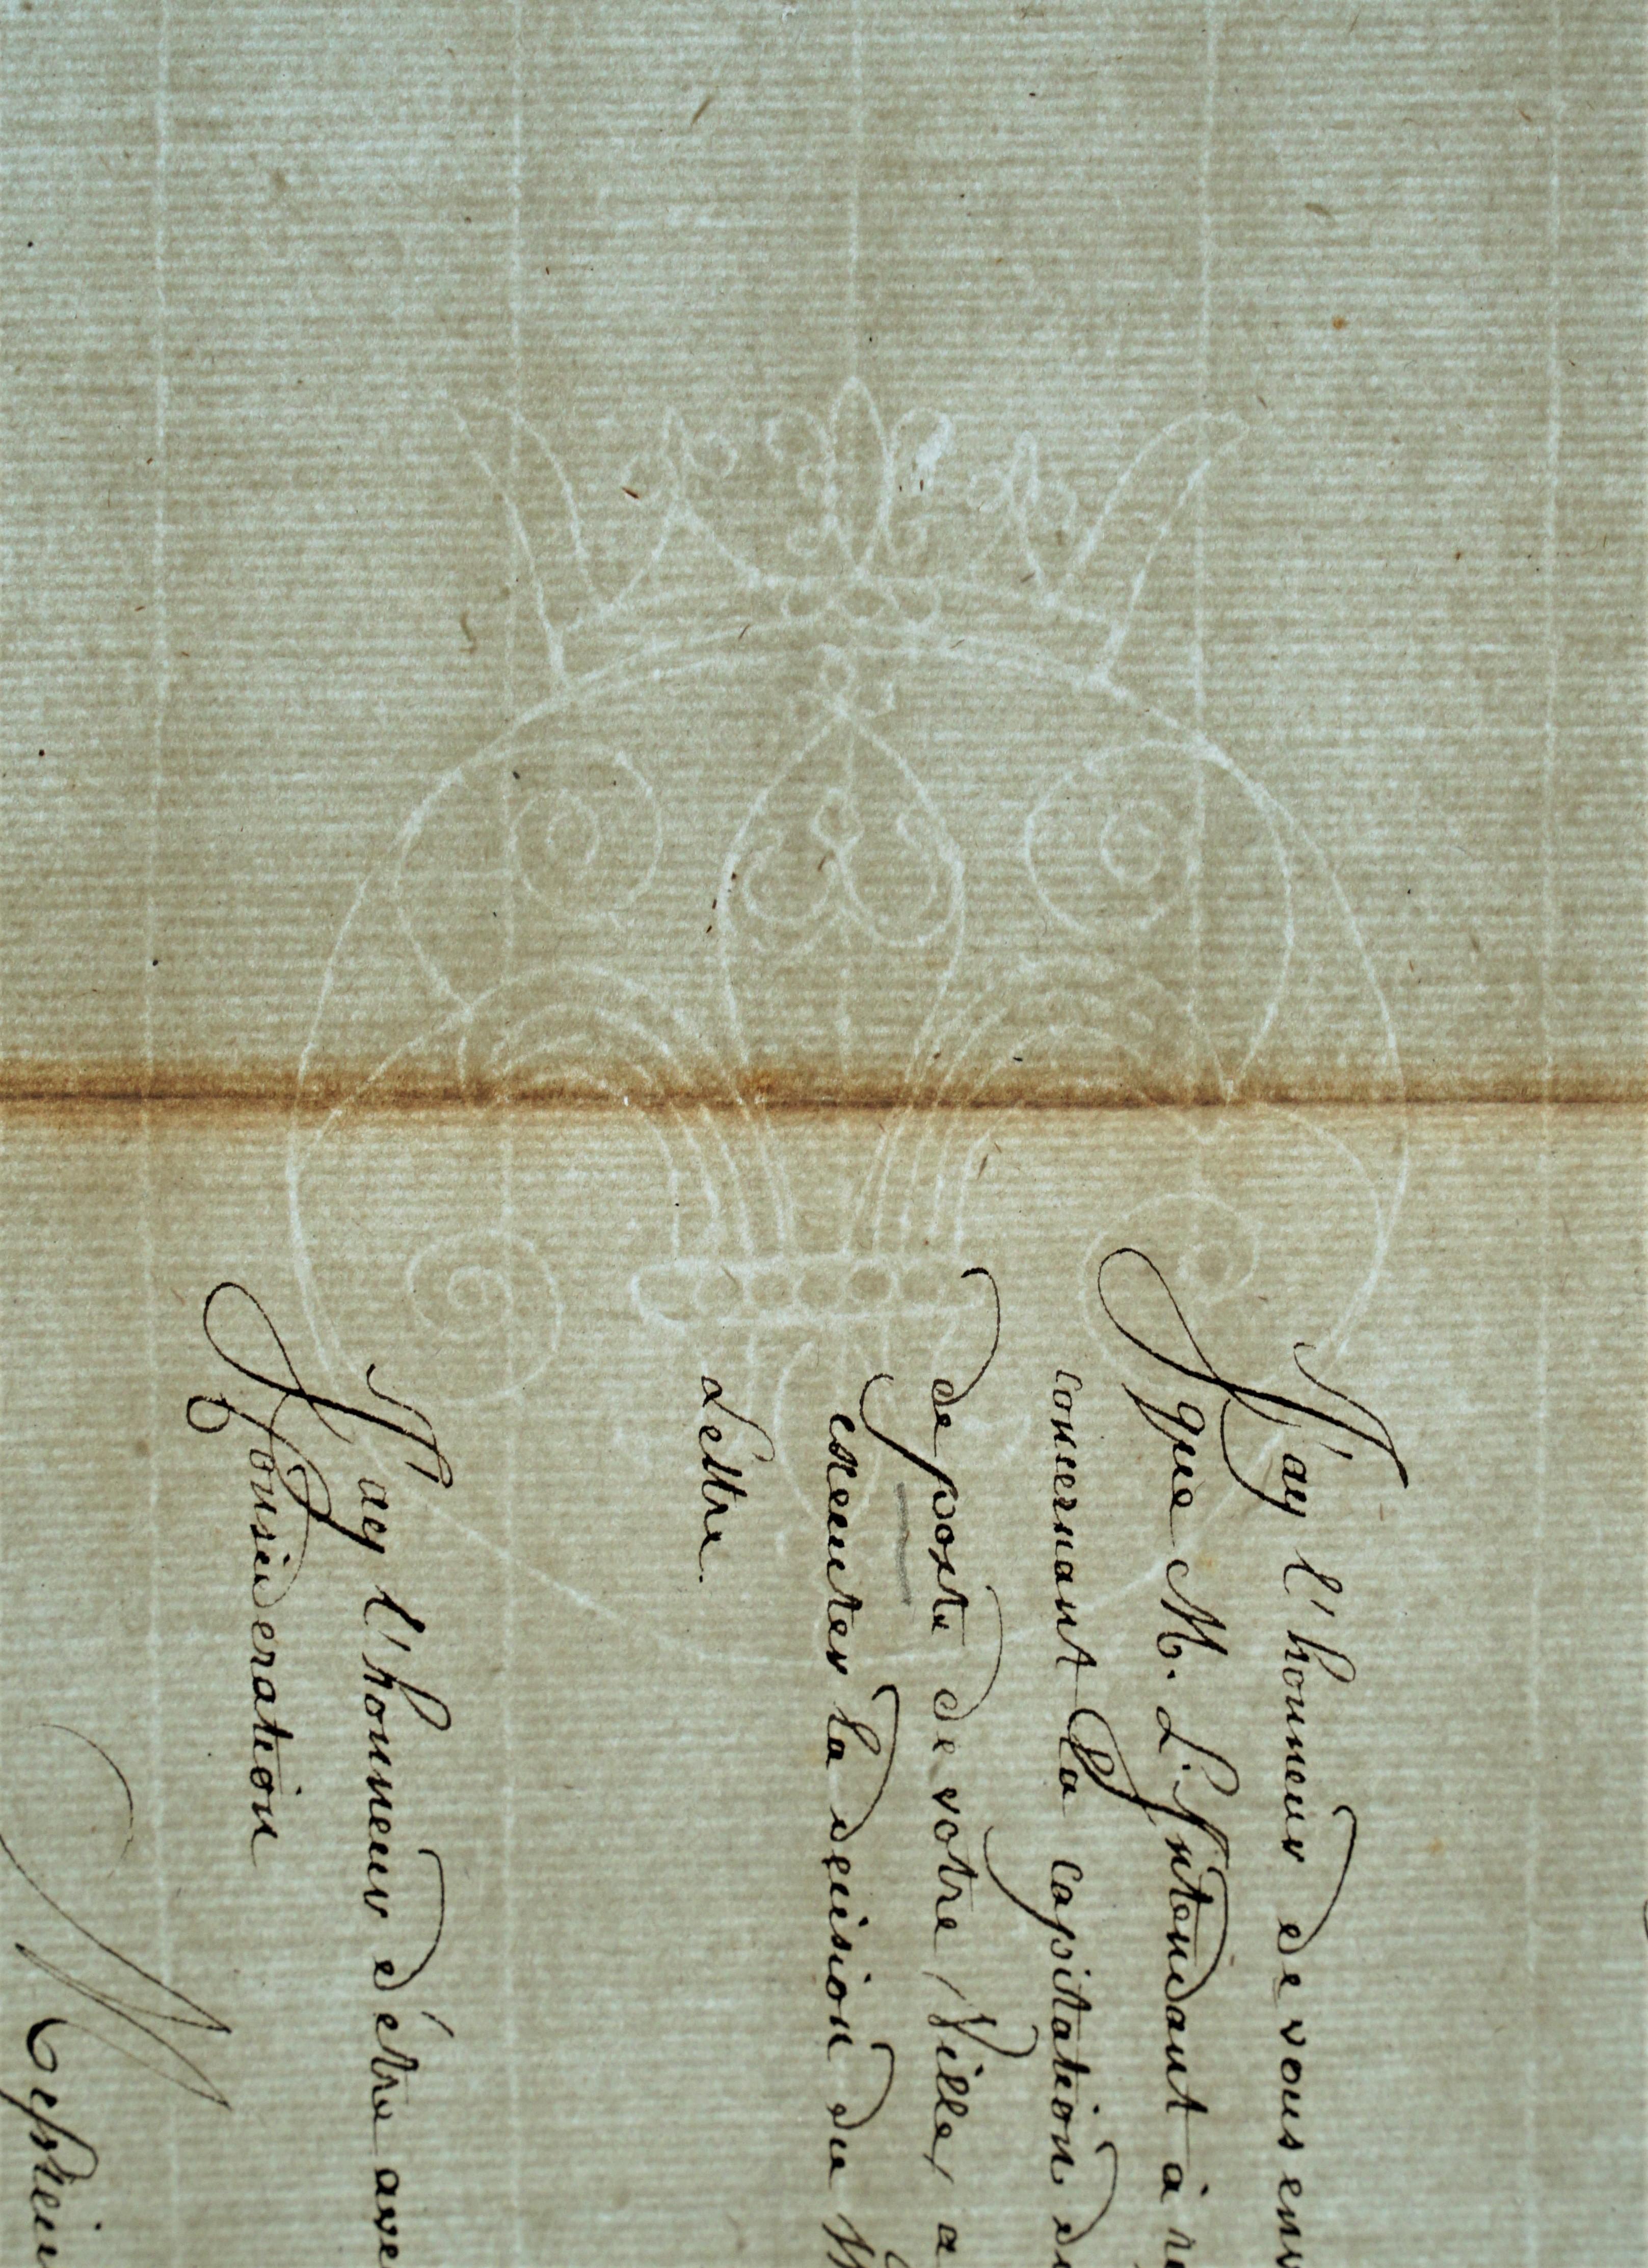 J'ay l'honneur de vous env
que M. L'Intendant à re
concernant la capitation de
de poste de votre Ville, a
executer la decision du
Lettre.
J'ay l'honneur d'être ave
Consideration
Messieu